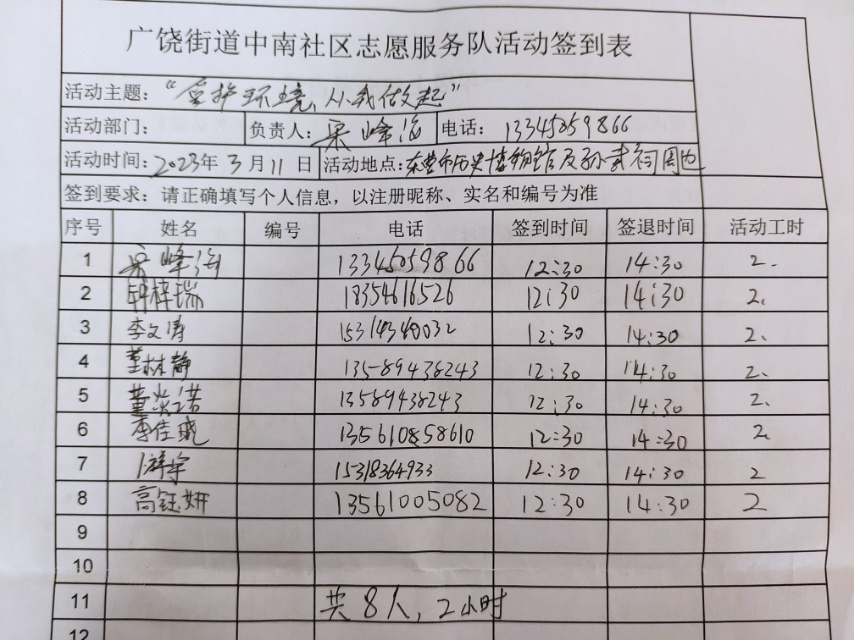 广饶街道中南社区志愿服务队活动签到表
活动主题："爱护环境、从我做起"
活动部门： 负责人：宋峰海 电话：13345059866
活动时间：2023年3月11日 活动地点：东营市历史博物馆及孙武祠周边
签到要求：请正确填写个人信息，以注册昵称、实名和编号为准
序号 姓名 编号 电话 签到时间 签退时间 活动工时
1 宋峰海 13345059866 12:30 14:30 2.
2 钟梓瑞 18354616526 12:30 14:30 2.
3 李文涛 15314340032 12:30 14:30 2.
4 董林静 13589438243 12:30 14:30 2.
5 董 诺 13589438243 12:30 14:30 2.
6 李佳晓 135610858610 12:30 14:30 2.
7 15318364933 12:30 14:30 2
8 高钰妍 13561005082 12:30 14:30 2
9
10
11 共8人，2小时
12